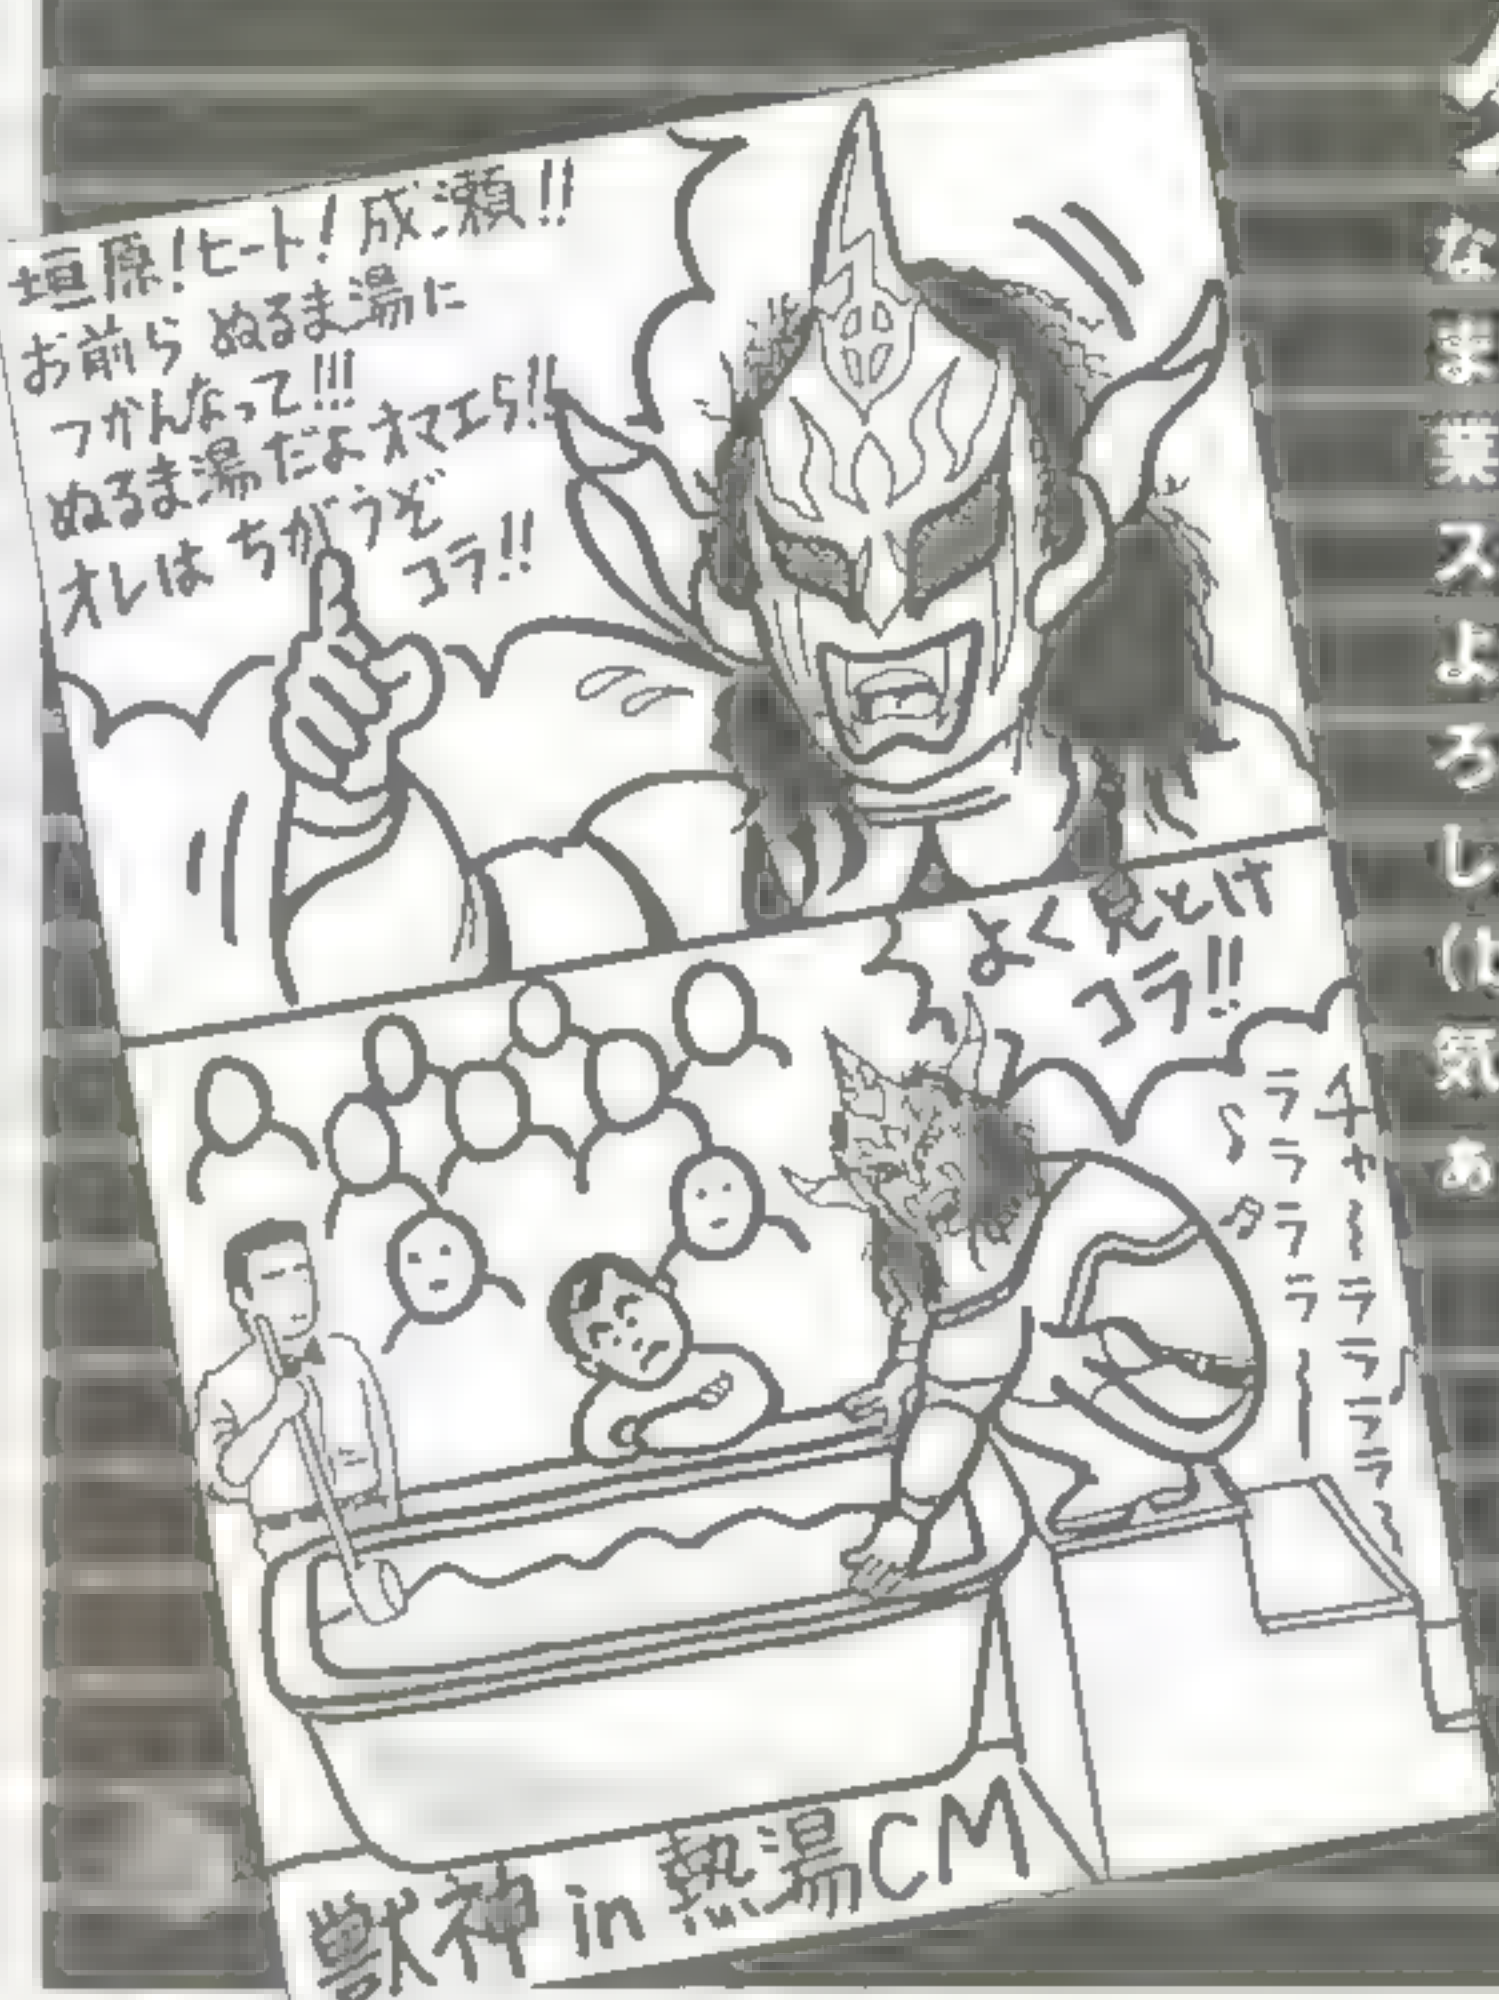 垣原!ヒート!成瀬!!
お前ら ぬるま湯に
つかんなって!!!
ぬるま湯だよオマエら!!
オレは ちがうぞ
コラ!!
よく見とけ
コラ!!
チャ〜ラララララ〜
ララララ〜
獣神 in 熱湯CM
なま業スよろしは気ーあ